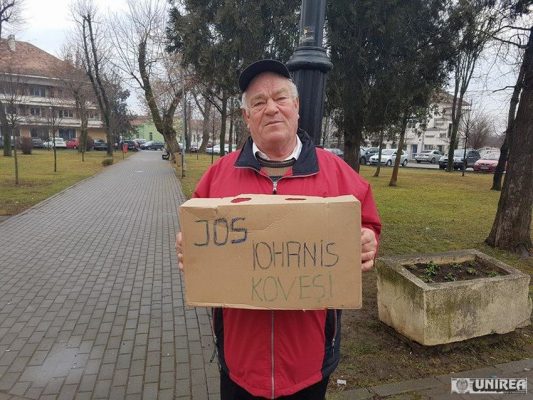 JOS
IOHANIS
KOVEȘI
UNIREA